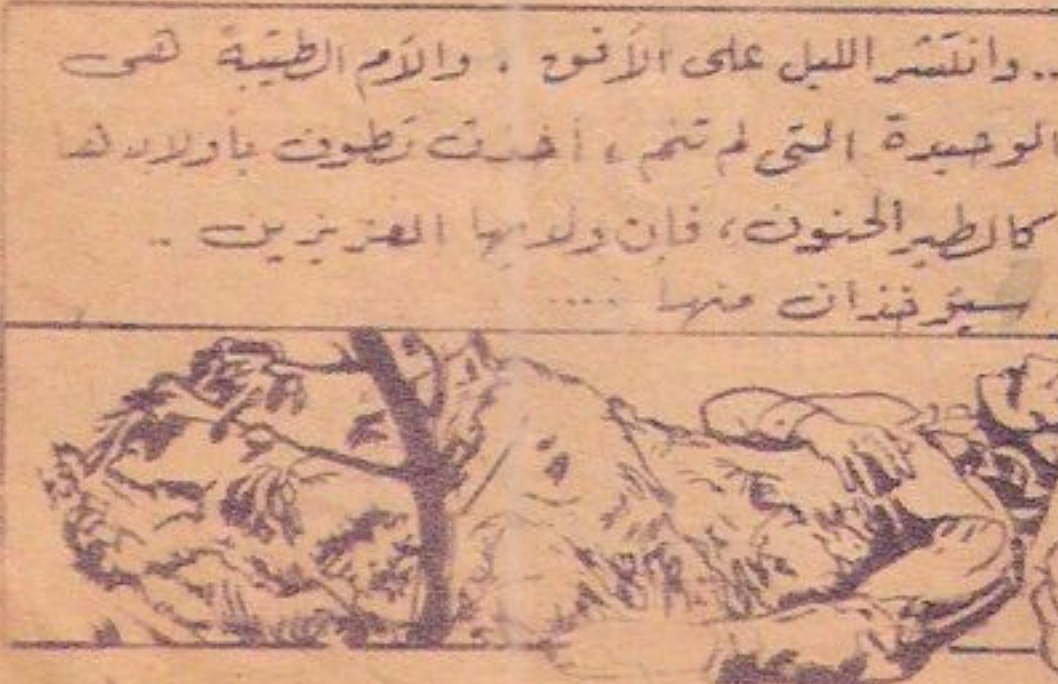 .. وانتشر الليل على الأفق ، والأم الطيبة هى
الوحيدة التى لم تنم ، أخذت تطوف بأولادها
كالطير الحنون ، فإن ولديها العزيزين ..
سيؤخذان منها ....